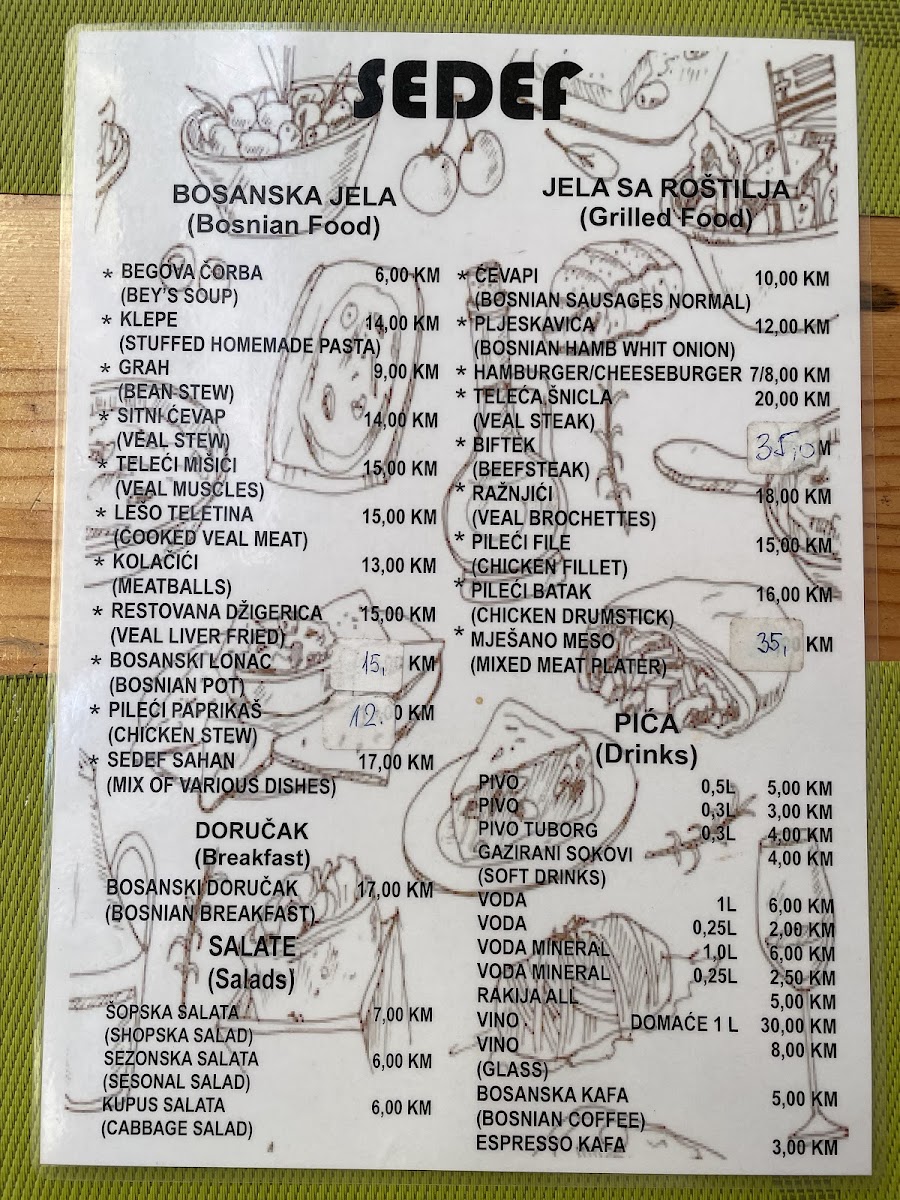 SEDEF
BOSANSKA JELA
(Bosnian Food)
* BEGOVA ČORBA 6,00 KM
(BEY'S SOUP)
* KLEPE 14,00 KM
(STUFFED HOMEMADE PASTA)
* GRAH 9,00 KM
(BEAN STEW)
* SITNI ĆEVAP 14,00 KM
(VEAL STEW)
* TELEĆI MIŠIĆI 15,00 KM
(VEAL MUSCLES)
* LEŠO TELETINA 15,00 KM
(COOKED VEAL MEAT)
* KOLAČIĆI 13,00 KM
(MEATBALLS)
* RESTOVANA DŽIGERICA 15,00 KM
(VEAL LIVER FRIED)
* BOSANSKI LONAC 15, KM
(BOSNIAN POT)
* PILEĆI PAPRIKAŠ 12. 0 KM
(CHICKEN STEW)
* SEDEF SAHAN 17,00 KM
(MIX OF VARIOUS DISHES)
DORUČAK
(Breakfast)
BOSANSKI DORUČAK 17,00 KM
(BOSNIAN BREAKFAST)
SALATE
(Salads)
ŠOPSKA SALATA 7,00 KM
(SHOPSKA SALAD)
SEZONSKA SALATA 6,00 KM
(SESONAL SALAD)
KUPUS SALATA 6,00 KM
(CABBAGE SALAD)
JELA SA ROŠTILJA
(Grilled Food)
* ĆEVAPI 10,00 KM
(BOSNIAN SAUSAGES NORMAL)
* PLJESKAVICA 12,00 KM
(BOSNIAN HAMB WHIT ONION)
* HAMBURGER/CHEESEBURGER 7/8,00 KM
* TELEĆA ŠNICLA 20,00 KM
(VEAL STEAK)
* BIFTEK 35,0 M
(BEEFSTEAK)
* RAŽNJIĆI 18,00 KM
(VEAL BROCHETTES)
* PILEĆI FILE 15,00 KM
(CHICKEN FILLET)
* PILEĆI BATAK 16,00 KM
(CHICKEN DRUMSTICK)
* MJEŠANO MESO 35, KM
(MIXED MEAT PLATER)
PIĆA
(Drinks)
PIVO 0,5L 5,00 KM
PIVO 0,3L 3,00 KM
PIVO TUBORG 0,3L 4,00 KM
GAZIRANI SOKOVI 4,00 KM
(SOFT DRINKS)
VODA 1L 6,00 KM
VODA 0,25L 2,00 KM
VODA MINERAL 1,0L 6,00 KM
VODA MINERAL 0,25L 2,50 KM
RAKIJA ALL 5,00 KM
VINO DOMAĆE 1 L 30,00 KM
VINO 8,00 KM
(GLASS)
BOSANSKA KAFA 5,00 KM
(BOSNIAN COFFEE)
ESPRESSO KAFA 3,00 KM